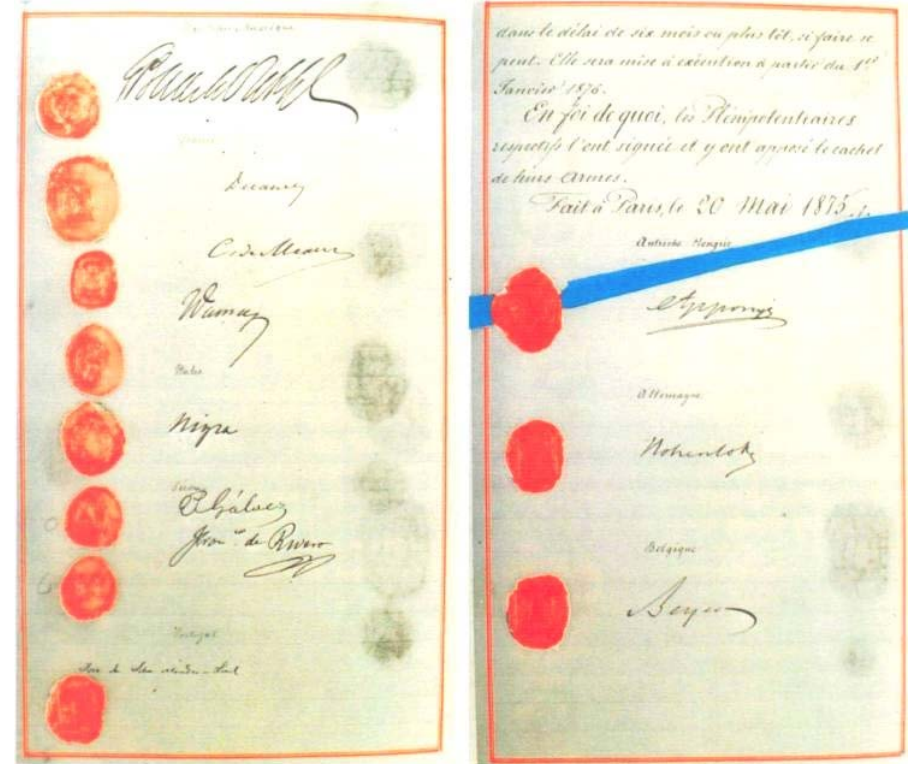 France
Decazes
C. de Meaux
Dumas
Italie
Nigra
Pérou
P. Gálvez
Fran.co de Rivero
Portugal
dans le délai de six mois ou plus tôt, si faire se
peut. Elle sera mise à exécution à partir du 1er
Janvier 1876.
En foi de quoi, les Plénipotentiaires
respectifs l'ont signée et y ont apposé le cachet
de leurs armes.
Fait à Paris, le 20 Mai 1875.
Autriche-Hongrie
Apponyi
Allemagne
Hohenlohe
Belgique
Beyens